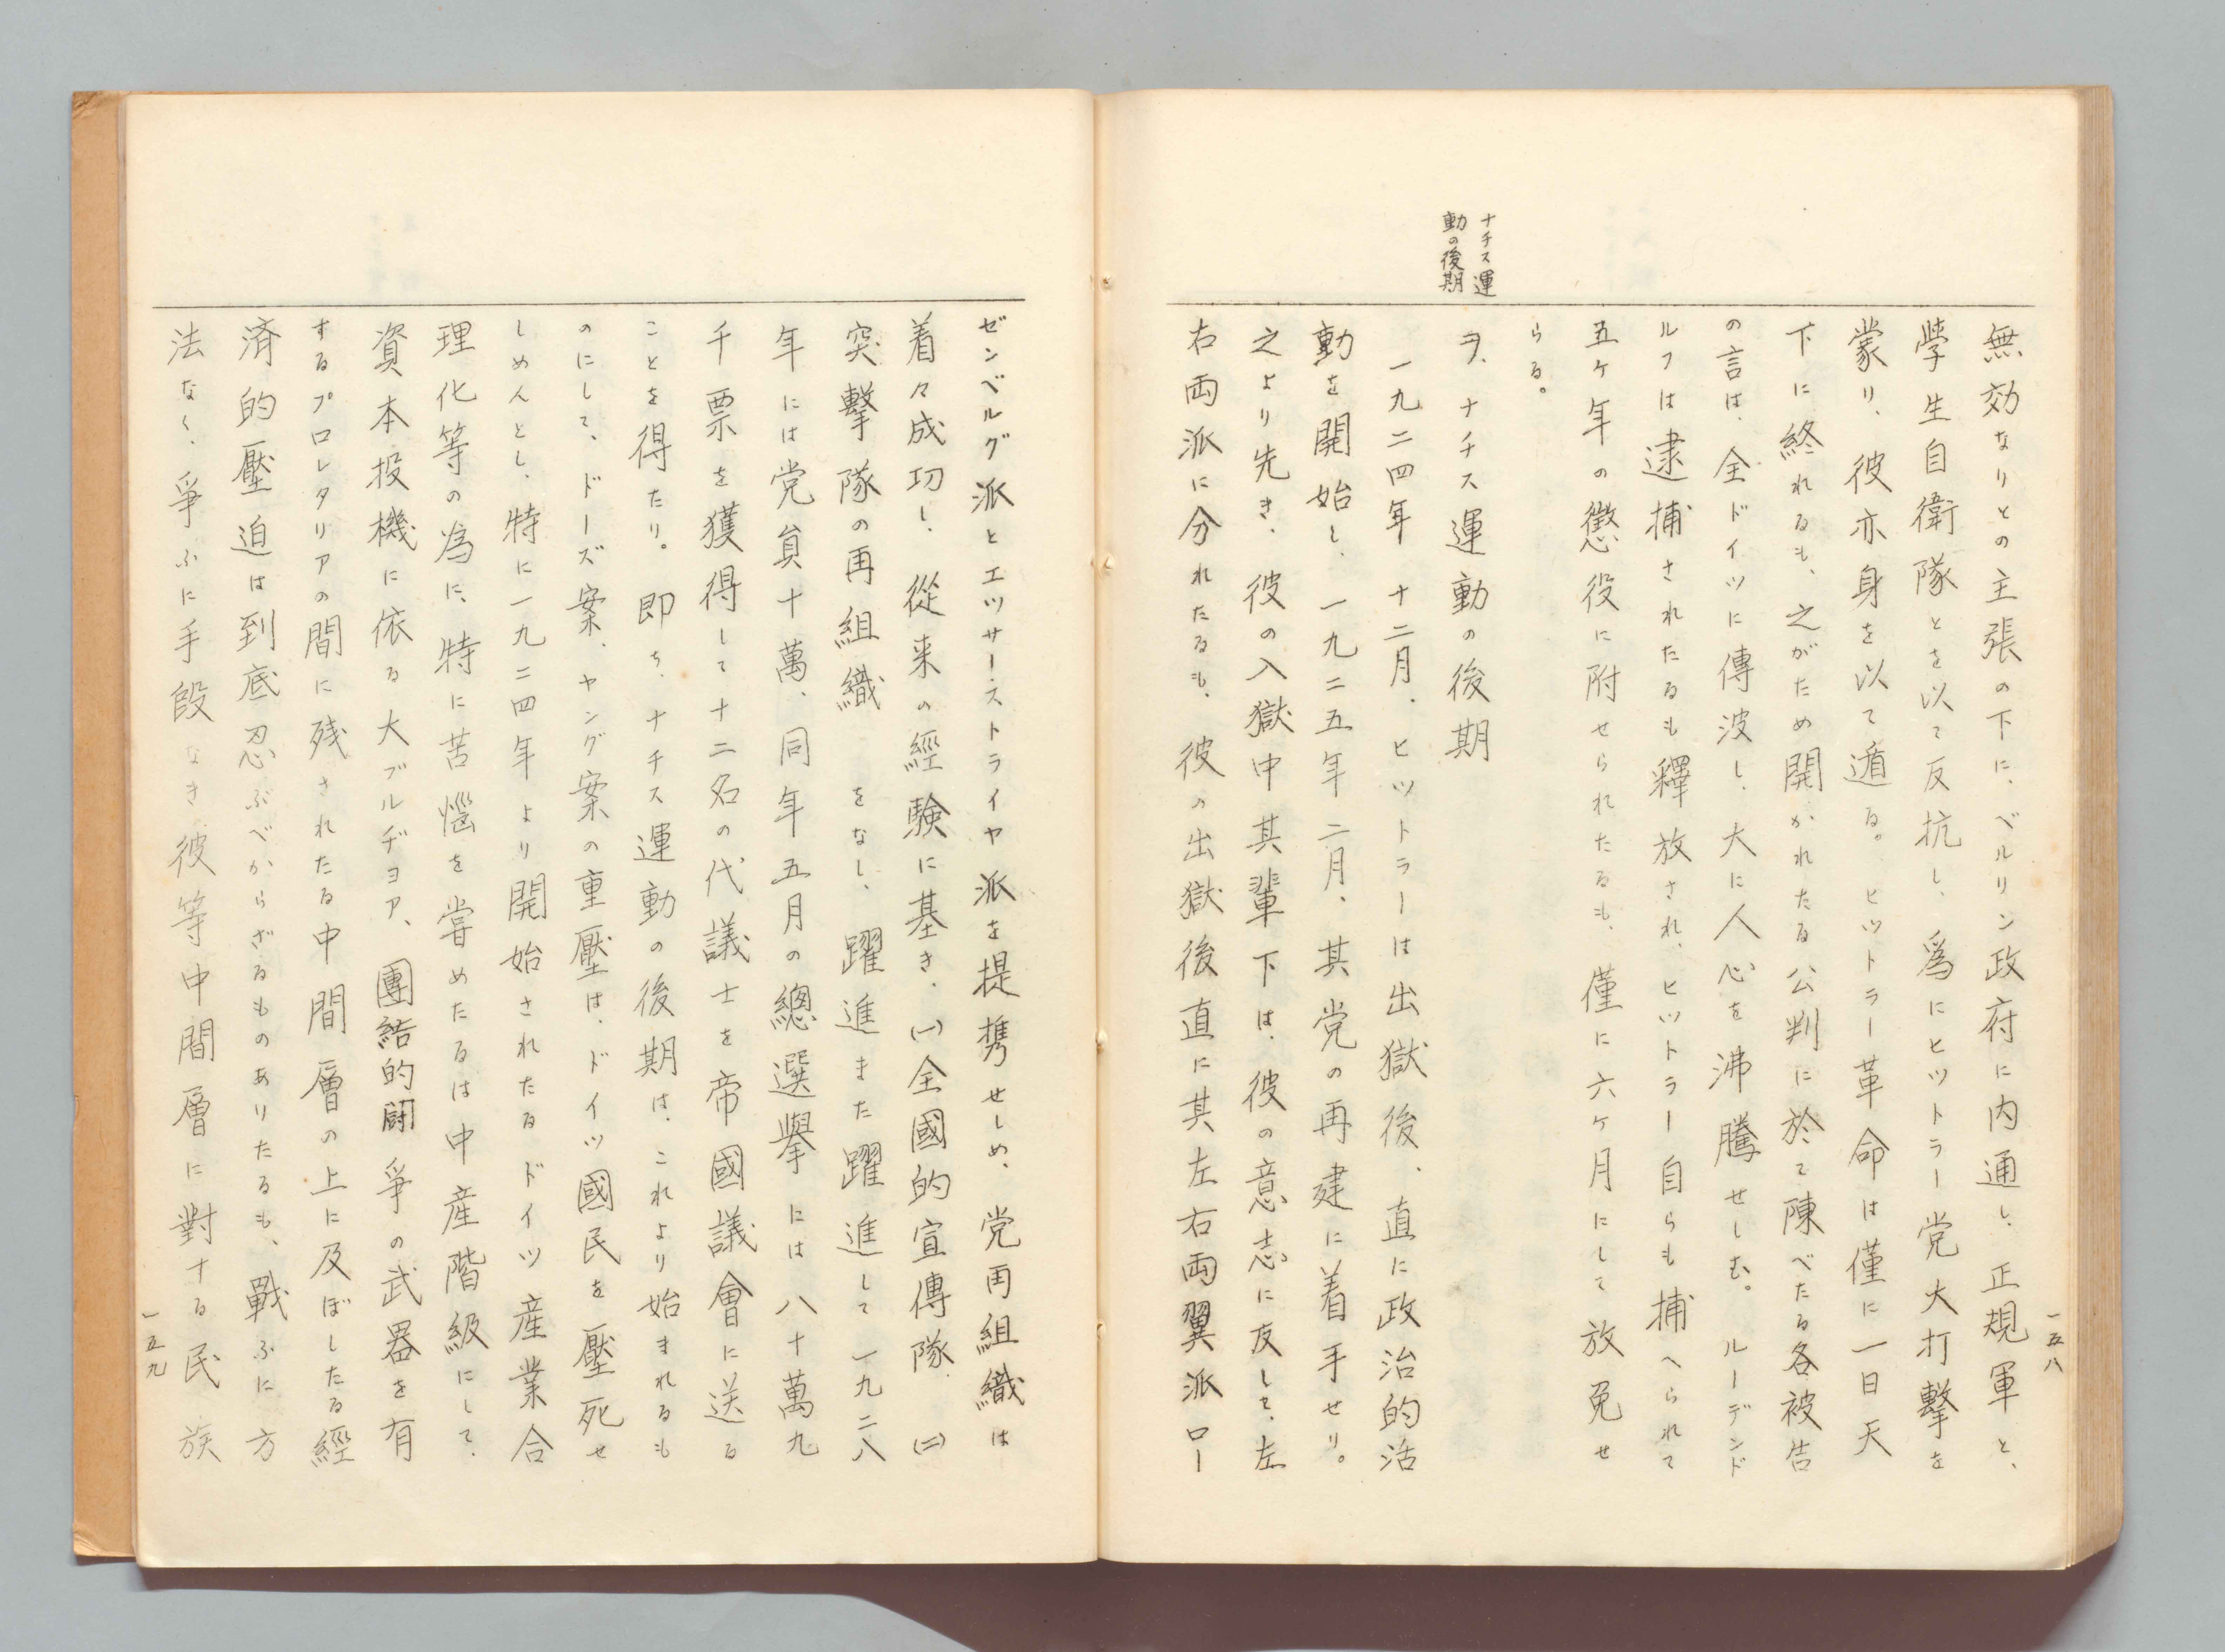 一五八
無効なりとの主張の下に、ベルリン政府に内通し、正規軍と、
學生自衛隊とを以て反抗し、爲にヒットラー党大打撃を
蒙り、彼亦身を以て遁る。ヒットラー革命は僅に一日天
下に終れるも、之がため開かれたる公判に於て陳べたる各被告
の言は、全ドイツに傳波し、大に人心を沸騰せしむ。ルーデンド
ルフは逮捕されたるも釋放され、ヒットラー自らも捕へられて
五ケ年の懲役に附せられたるも、僅に六ケ月にして放免せ
らる。
ナチス運
動の後期
ヲ、ナチス運動の後期
一九二四年十二月、ヒットラーは出獄後、直に政治的活
動を開始し、一九二五年二月、其党の再建に着手せり。
之より先き、彼の入獄中其輩下は、彼の意志に反して、左
右両派に分れたるも、彼の出獄後直に其左右両翼派ロー
ゼンベルグ派とエツサー、ストライヤ派を提携せしめ、党再組織は
着々成功し、從来の經験に基き、(一)全國的宣傳隊、(二)
突撃隊の再組織をなし、躍進また躍進して一九二八
年には党員十萬、同年五月の總選擧には八十萬九
千票を獲得して十二名の代議士を帝國議會に送る
ことを得たり。即ち、ナチス運動の後期は、これより始まれるも
のにして、ドーズ案、ヤング案の重壓は、ドイツ國民を壓死せ
しめんとし、特に一九二四年より開始されたるドイツ産業合
理化等の為に、特に苦惱を嘗めたるは中産階級にして、
資本投機に依る大ブルヂヨア、團結的闘爭の武器を有
するプロレタリアの間に残されたる中間層の上に及ぼしたる經
済的壓迫は到底忍ぶべからざるものありたるも、戰ふに方
法なく、爭ふに手段なき彼等中間層に對する民族
一五九